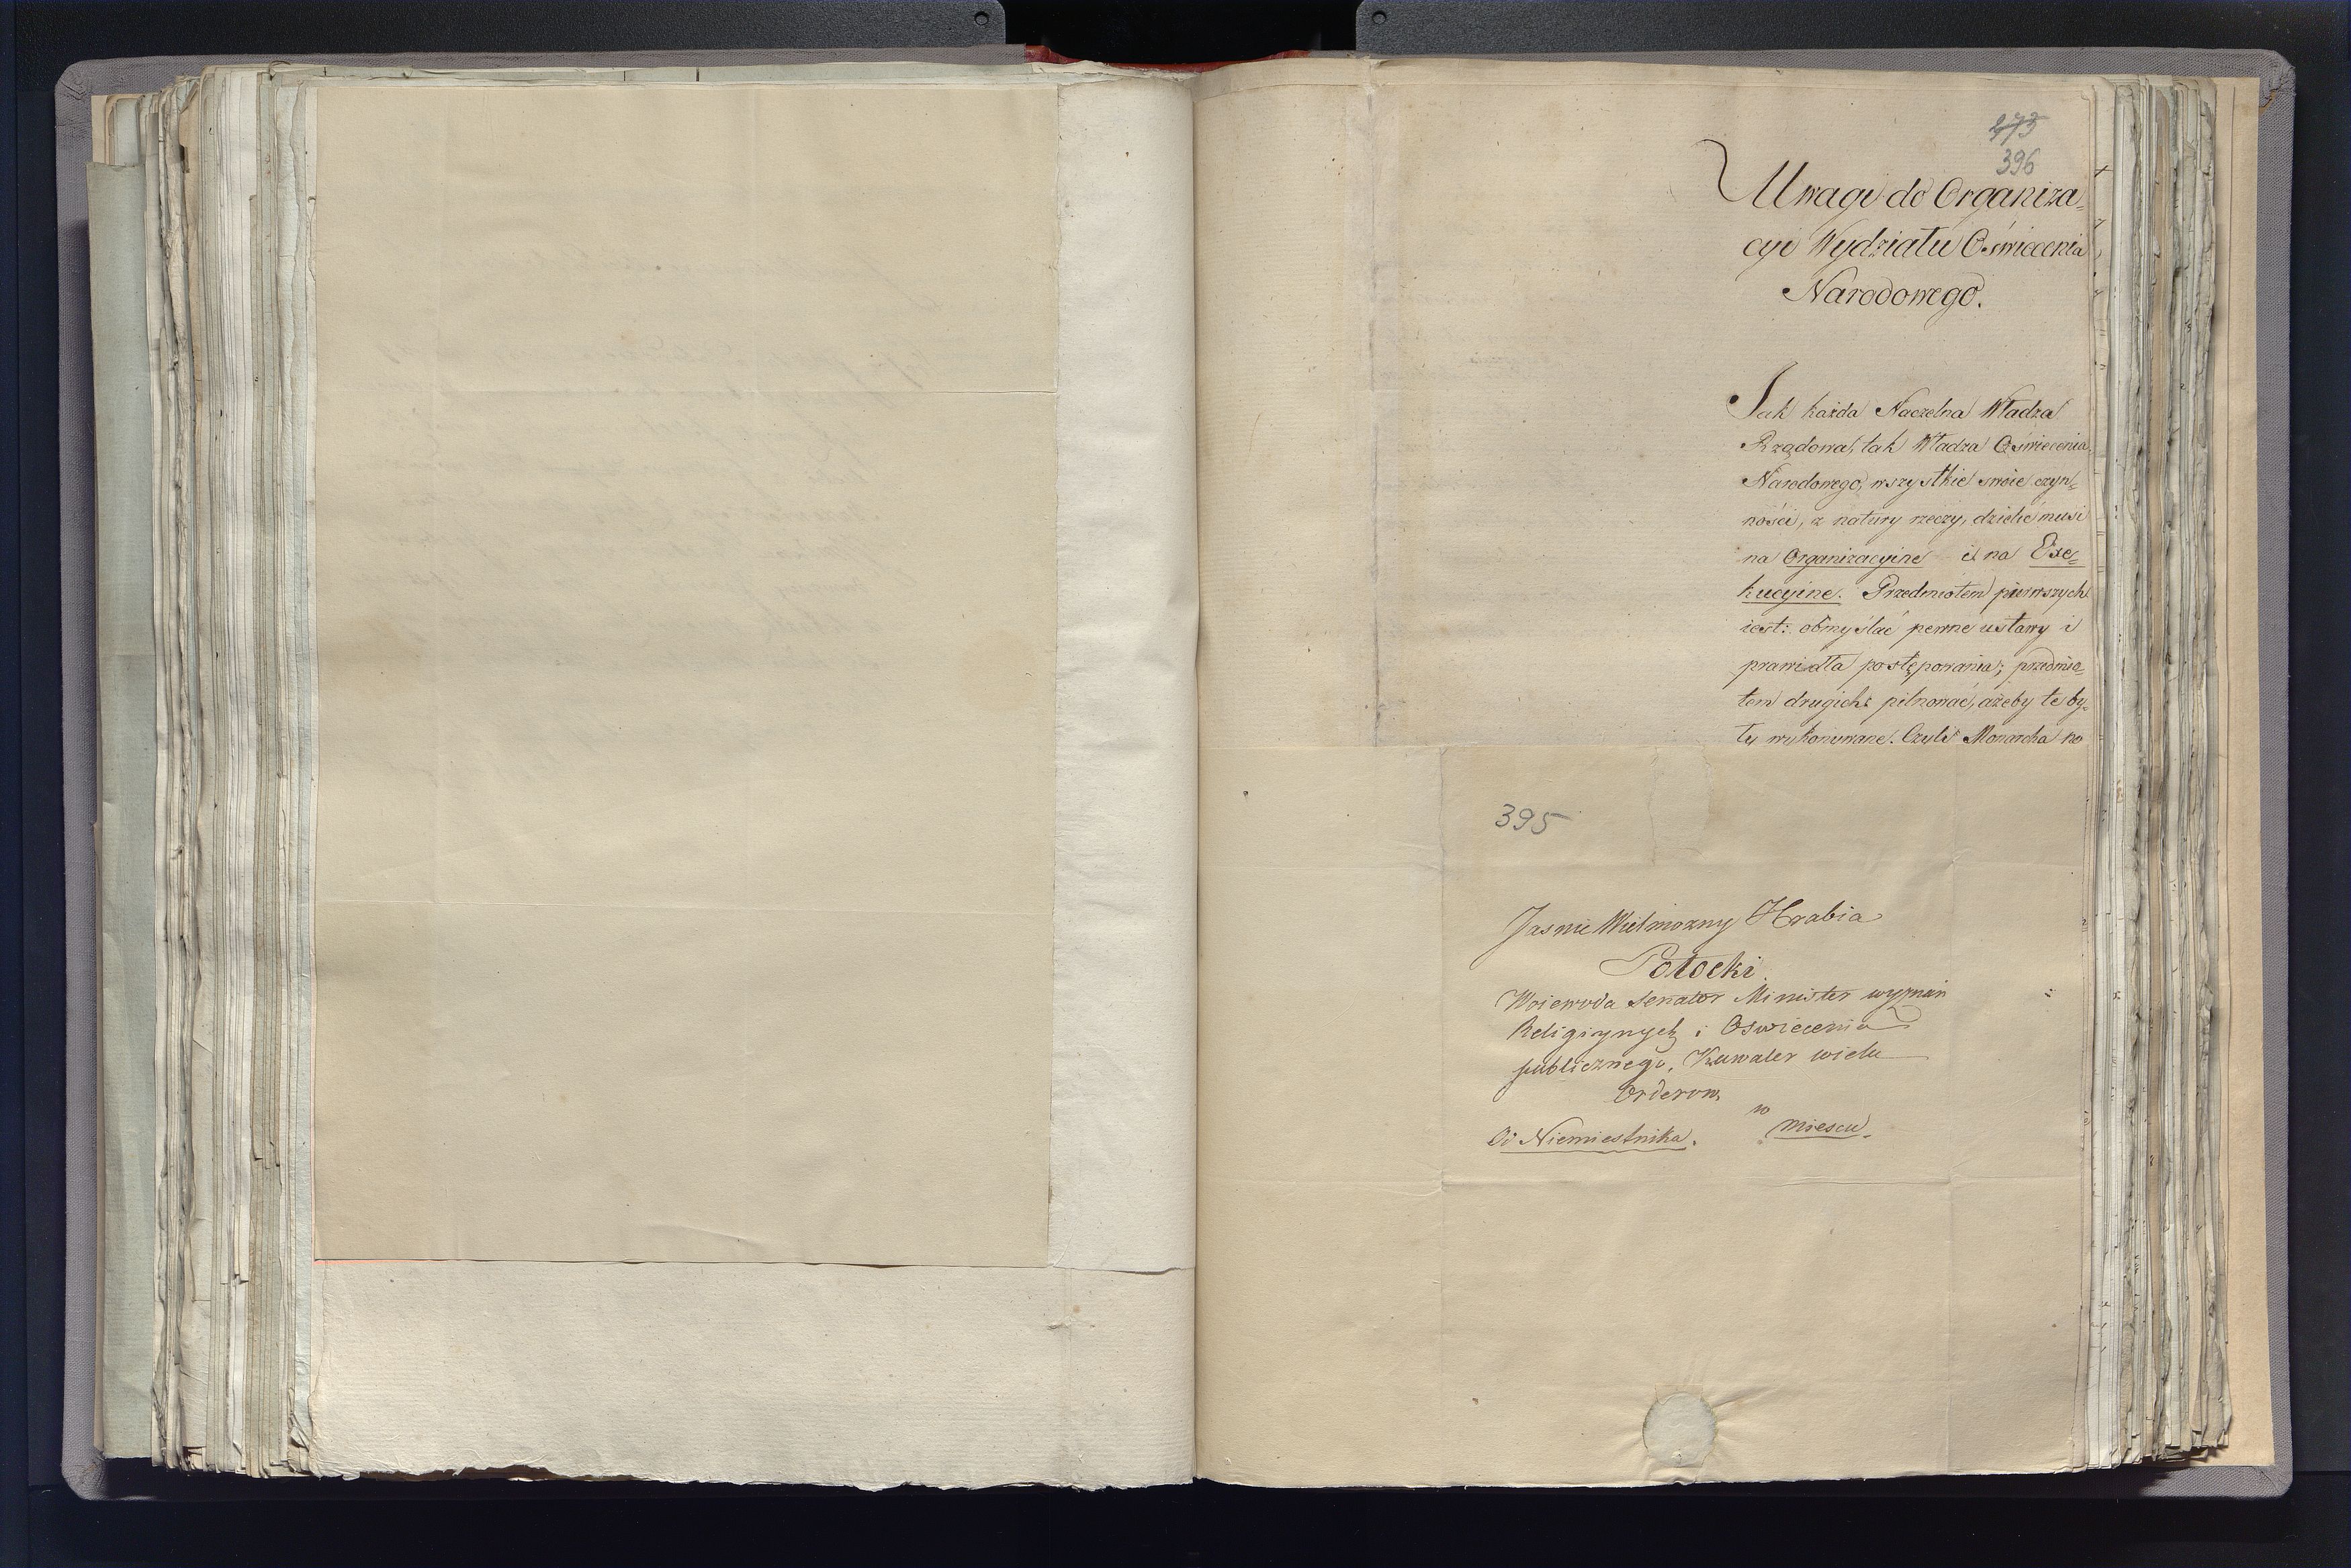 396
Uwagi do Organiza=
cyi Wydziału Oświecenia
Narodowego.
Jak każda Naczelna Władza
Rządowa, tak Władza Oświecenia
Narodowego, wszystkie swoie czyn=
ności, z natury rzeczy, dzielić musi
na Organizacyine i na Exe=
kucyine. Przedmiotem pierwszych
iest: obmyślać pewne ustawy i
prawidła postępowania; przedmio=
tem drugich: pilnować, ażeby te by=
ły wykonywane. Czyli Monarcha po
395
Jasnie Wielmozny Hrabia
Potocki
Woiewoda Senator Minister wyznań
Religiynych i Oswiecenia
publicznego, Kawaler wielu
Orderow
w
miescu.
Od Niemiestnika.